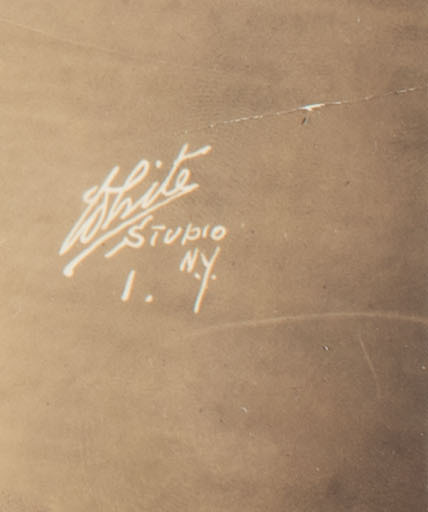 White
STUDIO
N.Y.
1.